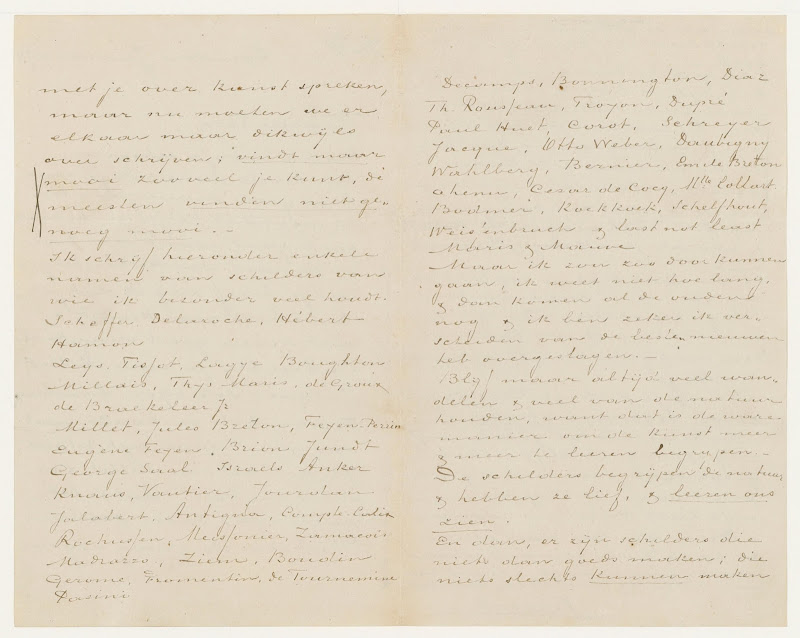 met je over kunst spreken,
maar nu moeten we er
elkaar maar dikwijls
over schrijven; vindt maar
mooi zooveel je kunt, de
meesten vinden niet ge-
noeg mooi. –
Ik schrijf hieronder enkele
namen van schilders van
wie ik bizonder veel houdt.
Scheffer, Delaroche, Hébert
Hamon
Leys, Tissot, Lagye Boughton
Millais, Thys Maris, de Groux
de Braekeleer Jr
Millet, Jules Breton, Feyen-Perrin
Eugène Feyen, Brion Jundt
George Saal Israels Anker
Knaus, Vautier, Jourdan
Jalabert, Antigna, Compte-Calix
Rochussen, Meissonier, Zamacois
Madrazzo, Ziem, Boudin
Gerome, Fromentin, de Tournemine
Pasini
Décamps, Bonnington, Diaz
Th. Rousseau, Troyon, Dupré
Paul Huet, Corot, Schreyer
Jacque, Otto Weber, Daubigny
Wahlberg, Bernier, Emile Breton
Chenu, Cesar de Cocq, Mlle Collart.
Bodmer, Koekkoek, Schelfhout,
Weissenbruch & last not least
Maris & Mauve
Maar ik zou zoo door kunnen
gaan, ik weet niet hoe lang,
& dan komen al de ouden
nog & ik ben zeker ik ver-
scheiden van de beste nieuwen
heb overgeslagen. –
Blijf maar altijd veel wan-
delen & veel van de natuur
houden, want dat is de ware
manier om de kunst meer
& meer te leeren begrijpen. –
De schilders begrijpen de natuur
& hebben ze lief, & leeren ons
zien.
En dan, er zijn schilders die
niets dan goeds maken; die
niets slechts kunnen maken